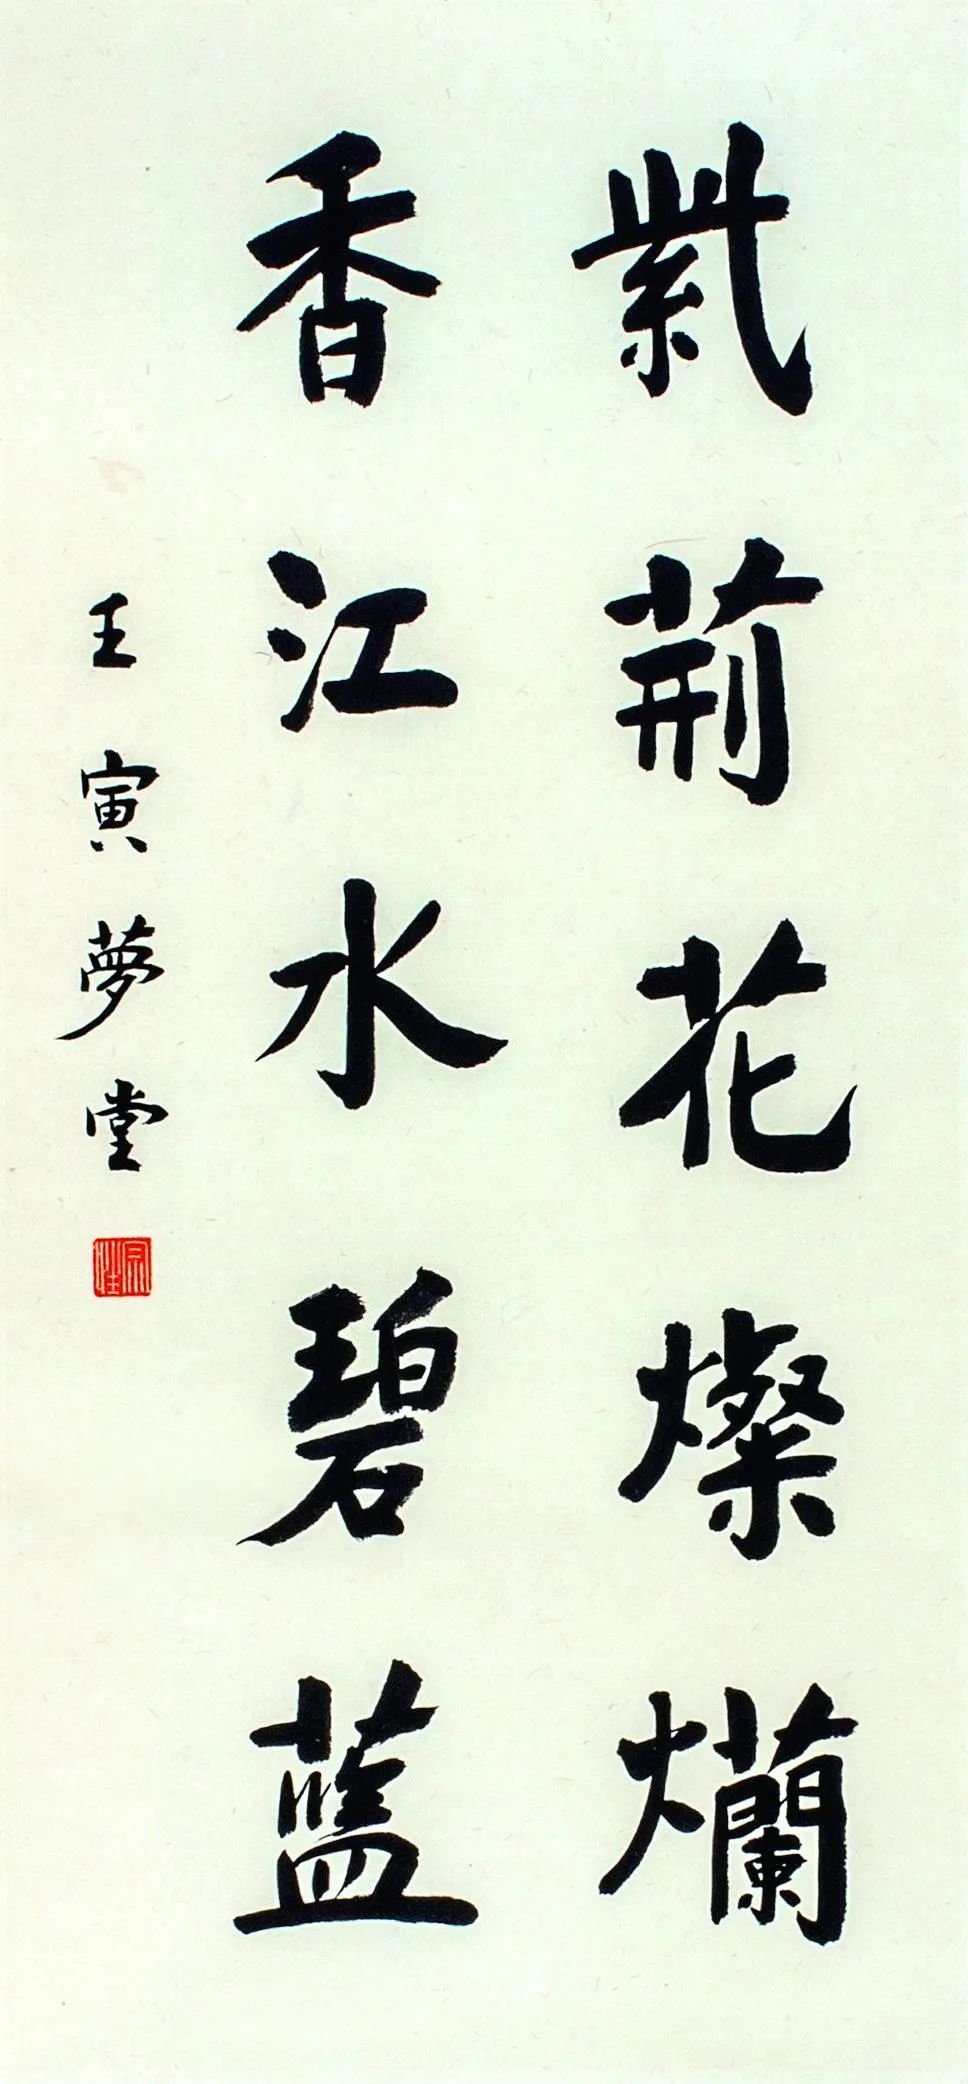 紫荊花燦爤
香江水碧藍
壬寅夢堂